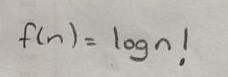 f(n) = log n!